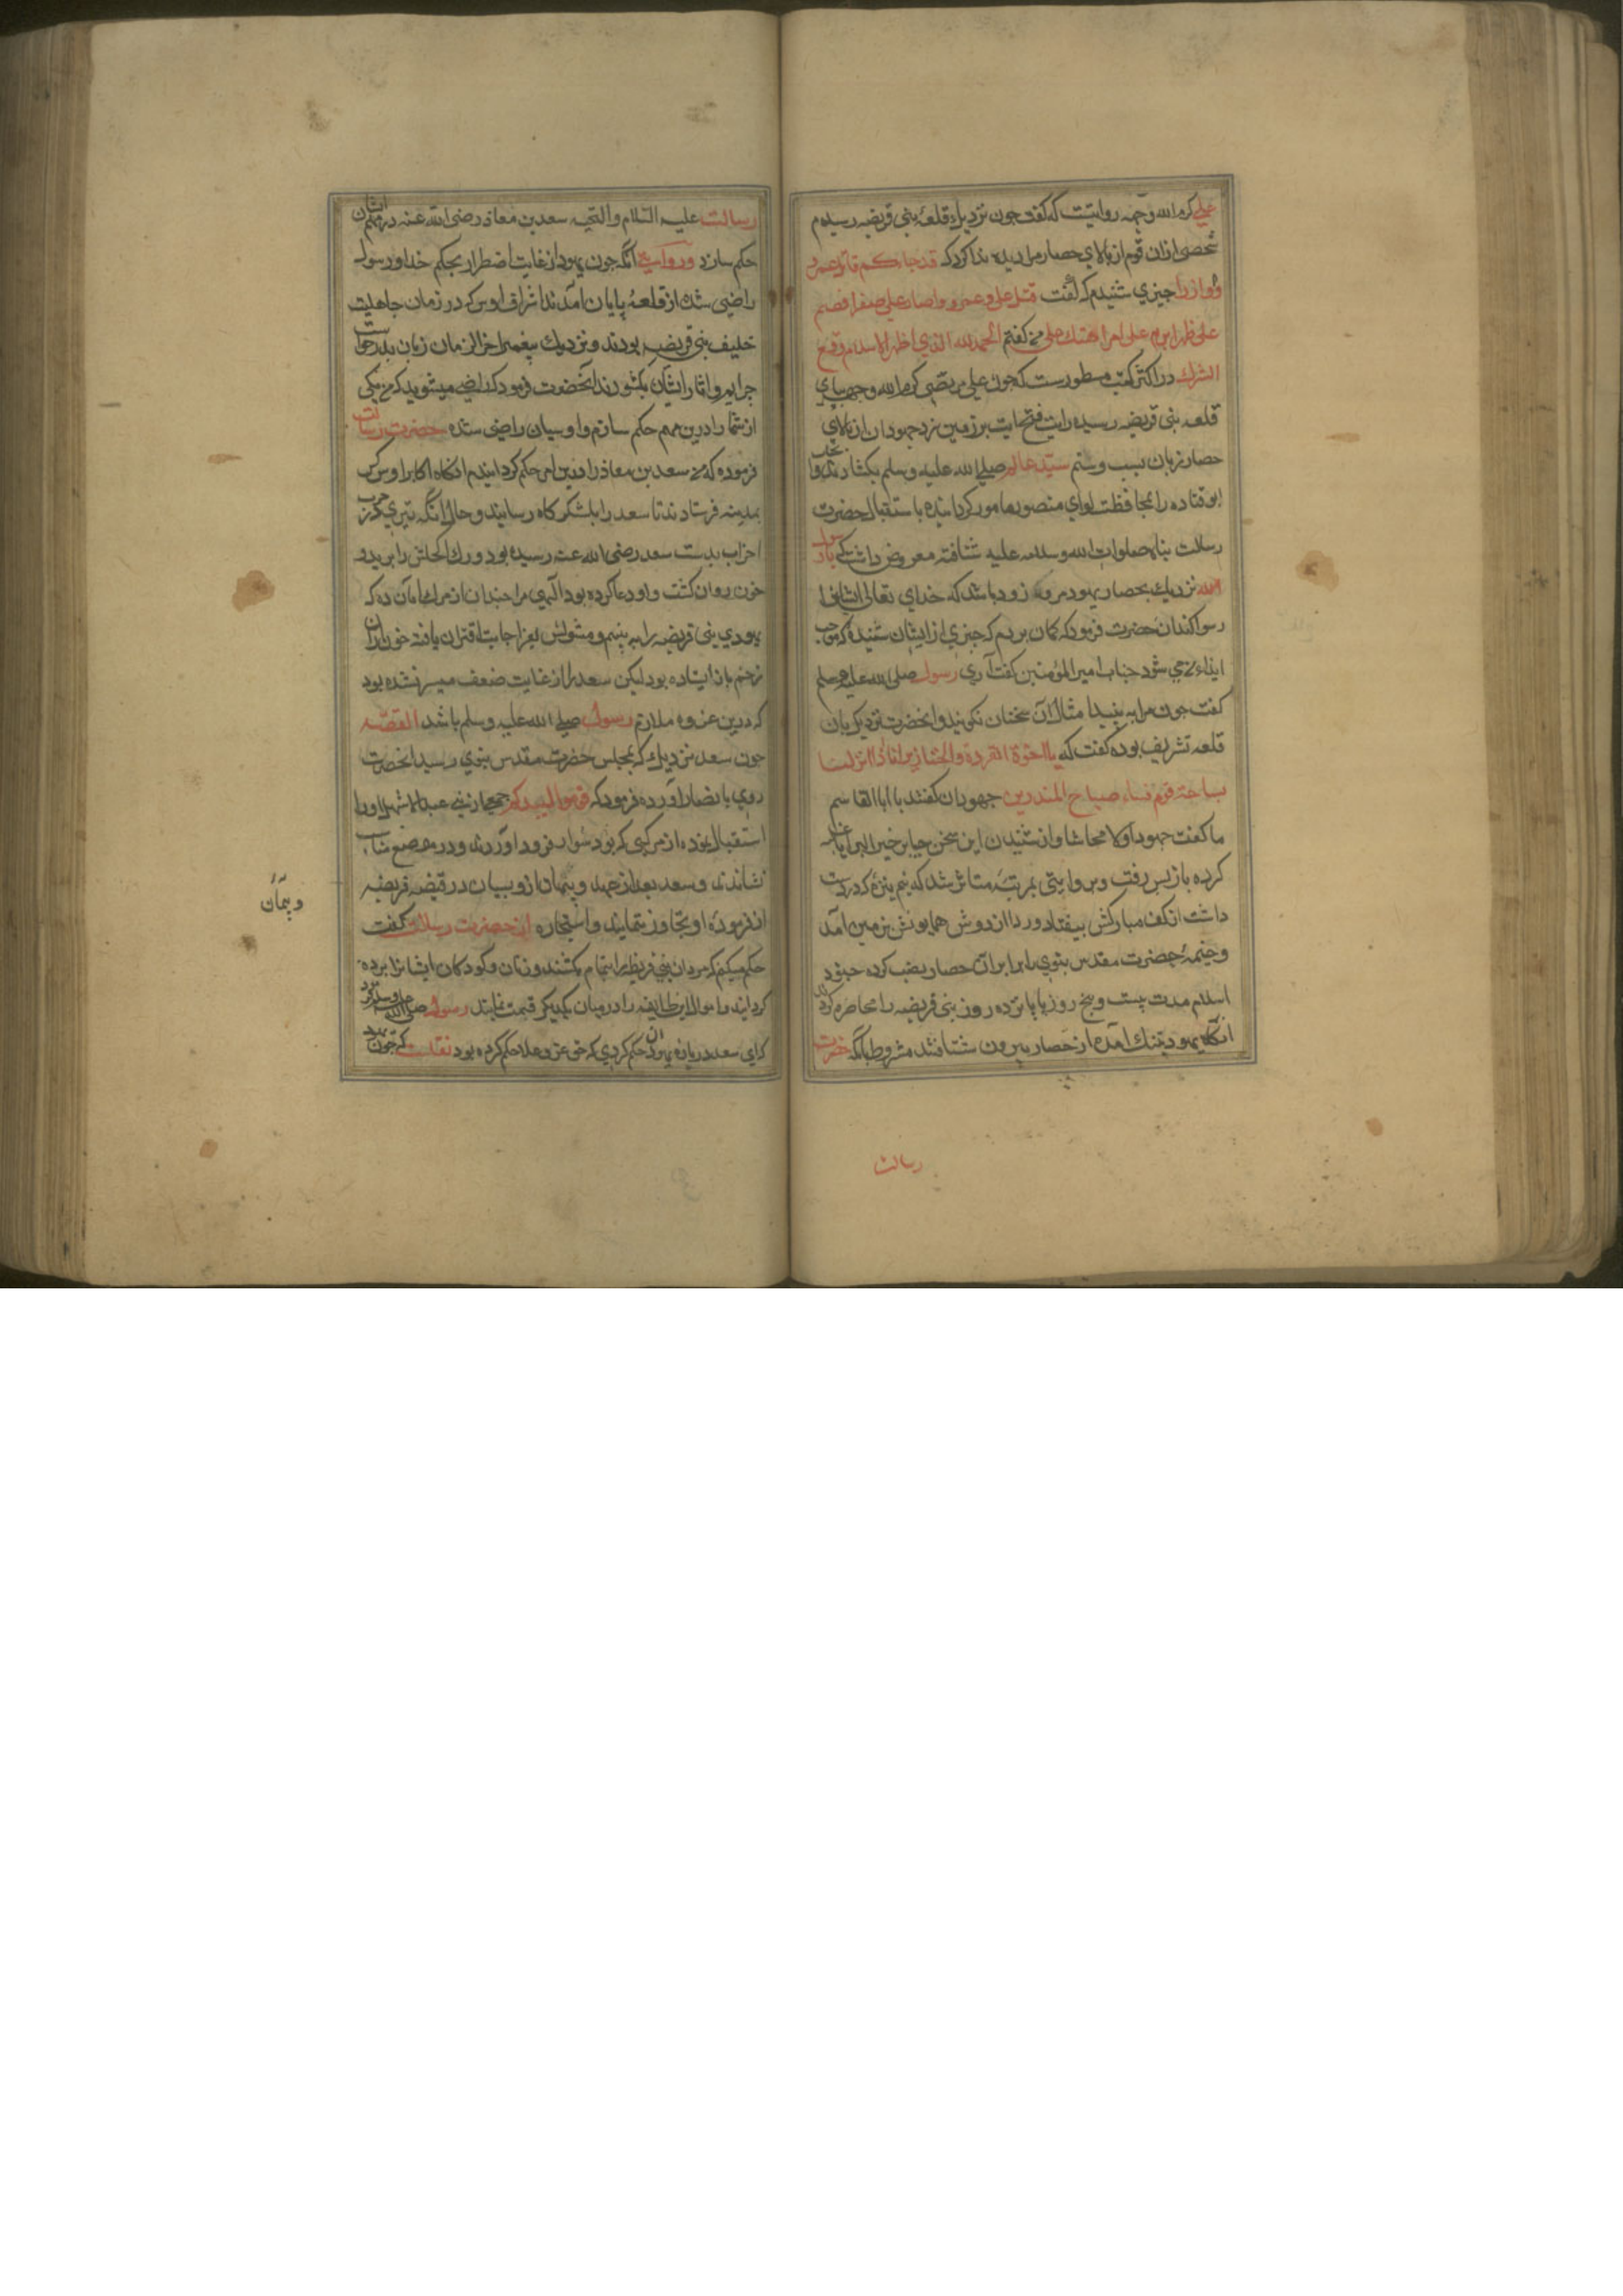 علی کرم الله وجهه روایتست که گفت چون نزدیک قلعهٔ بنی قریضه رسیدم
شخصی ازان قوم از بالای حصار مرا دیده ندا کرد که قد جاءکم قاتل عمرو
و آواز را چیزی شنیدم که گفت قتل علی عمروا و صار علی صقرا قصم
علی ظهرا ابرم علی امرا هتک علی من گفتم الحمدلله الذی اظهر الاسلام و قمع
الشرک در اکثر کتب مسطورست که چون علی مرتضی کرم الله وجهه بپای
قلعه بنی قریضه رسیده رایت فتح آیت بر زمین زد جهودان از بالای
حصار زبان بسب و شتم سید عالم صلی الله علیه وسلم بکشادند
ابو قتاده را بمحافظت لوای منصور مامور کردانیده باستقبال حضرت
رسالت پناه صلوات الله وسلامه علیه شتافته معروض داشت که یا رسول
الله نزدیک بحصار یهود مرو که زود باشد که خدای تعالی ایشانرا
رسوا کند آن حضرت فرمود که کمان بردم که چیزی از ایشان شنیده که موجب
ایذاء من می شود جناب امیر المؤمنین گفت آری رسول صلی الله علیه وسلم
گفت چون مرا به بیند امثال آن سخنان نکویند و آنحضرت نزدیک بآن
قلعه تشریف بوده گفت که یا اخوة القردة والخنازیر انا اذا انزلنا
بساحة قوم فساء صباح المنذرین جهودان گفتند یا ابا القاسم
ما کنت جهولا ولا فحاشا و از شنیدن این سخن حیا بر خیر البرایا غلبه
کرده باز پس رفت و بروایتی بمرتبهٔ متاثر شد که نیم نیزهٔ که در دست
داشت از کف مبارکش بیفتاد و ردا از دوش همایونش بزمین آمد
و خیمهٔ حضرت مقدس نبوی را برابر آن حصار نصب کرده جنود
اسلام مدت بیست و پنج روز یا پانزده روز بنی قریضه را محاصره کردند
آنکاه یهود بتنک آمده از حصار بیرون شتافتند مشروط بآنکه حضرت
رسالت
رسالت علیه السلام والتحیه سعد بن معاذ رضی الله عنه در مهم ایشان
حکم سازد و روایت آنکه چون یهود از غایت اضطرار بحکم خدا و رسول
راضی شده از قلعه پایان آمدند اشراف اوس که در زمان جاهلیت
حلیف بنی قریضه بودند و نزدیک پیغمبر آخر الزمان زبان بدرخواست
جرایم و آثار ایشان بکشودند آنحضرت فرمود که راضی میشوید که من یکی
از شما را درین مهم حکم سازم و اوسیان راضی شده حضرت رسالت
فرموده که من سعد بن معاذ را درین امر حکم کردانیدم آنکاه اکابر اوس کس
بمدینه فرستادند تا سعد را بلشکرکاه رسانیدند و حال آنکه تیری که در حرب
احزاب بدست سعد رضی الله عنه رسیده بود و رک اکحلش را بریده
خون روان کشت و او دعا کرده بود الهی مرا چندان از مرک امان ده که
یهودی بنی قریضه را به بینم و مسئولش بعز اجابت اقتران یافته خون از آن
زخم باز ایستاده بود لیکن سعد را از غایت ضعف میسر نشده بود
که درین غزوه ملازم رسول صلی الله علیه وسلم باشد القصه
چون سعد نزدیک که بمجلس حضرت مقدس نبوی رسید آنحضرت
روی بانصار آورده فرمود که قوموا لسیدکم جمعی از بنی عبدالاشهل او را
استقبال نموده از مرکبی که بود سوار فرود آوردند و در موضع مناسب
نشاندند و سعد بعد از عهد و پیمان از اوسیان در قضیه قریضه
از فرمودهٔ او تجاوز ننمایند و استجازه از حضرت رسالت گفت
حکم میکنم که مردان بنی قریظه را بتمام بکشند و زنان و کودکان ایشانرا برده
کردانند و اموال این طایفه را در میان یکدیکر قیمت نمایند رسول صلی الله علیه وسلم فرمود
که ای سعد درباره یهودان حکم کردی که حق عز و علا حکم کرده بود نقلست که چون
و پیمان